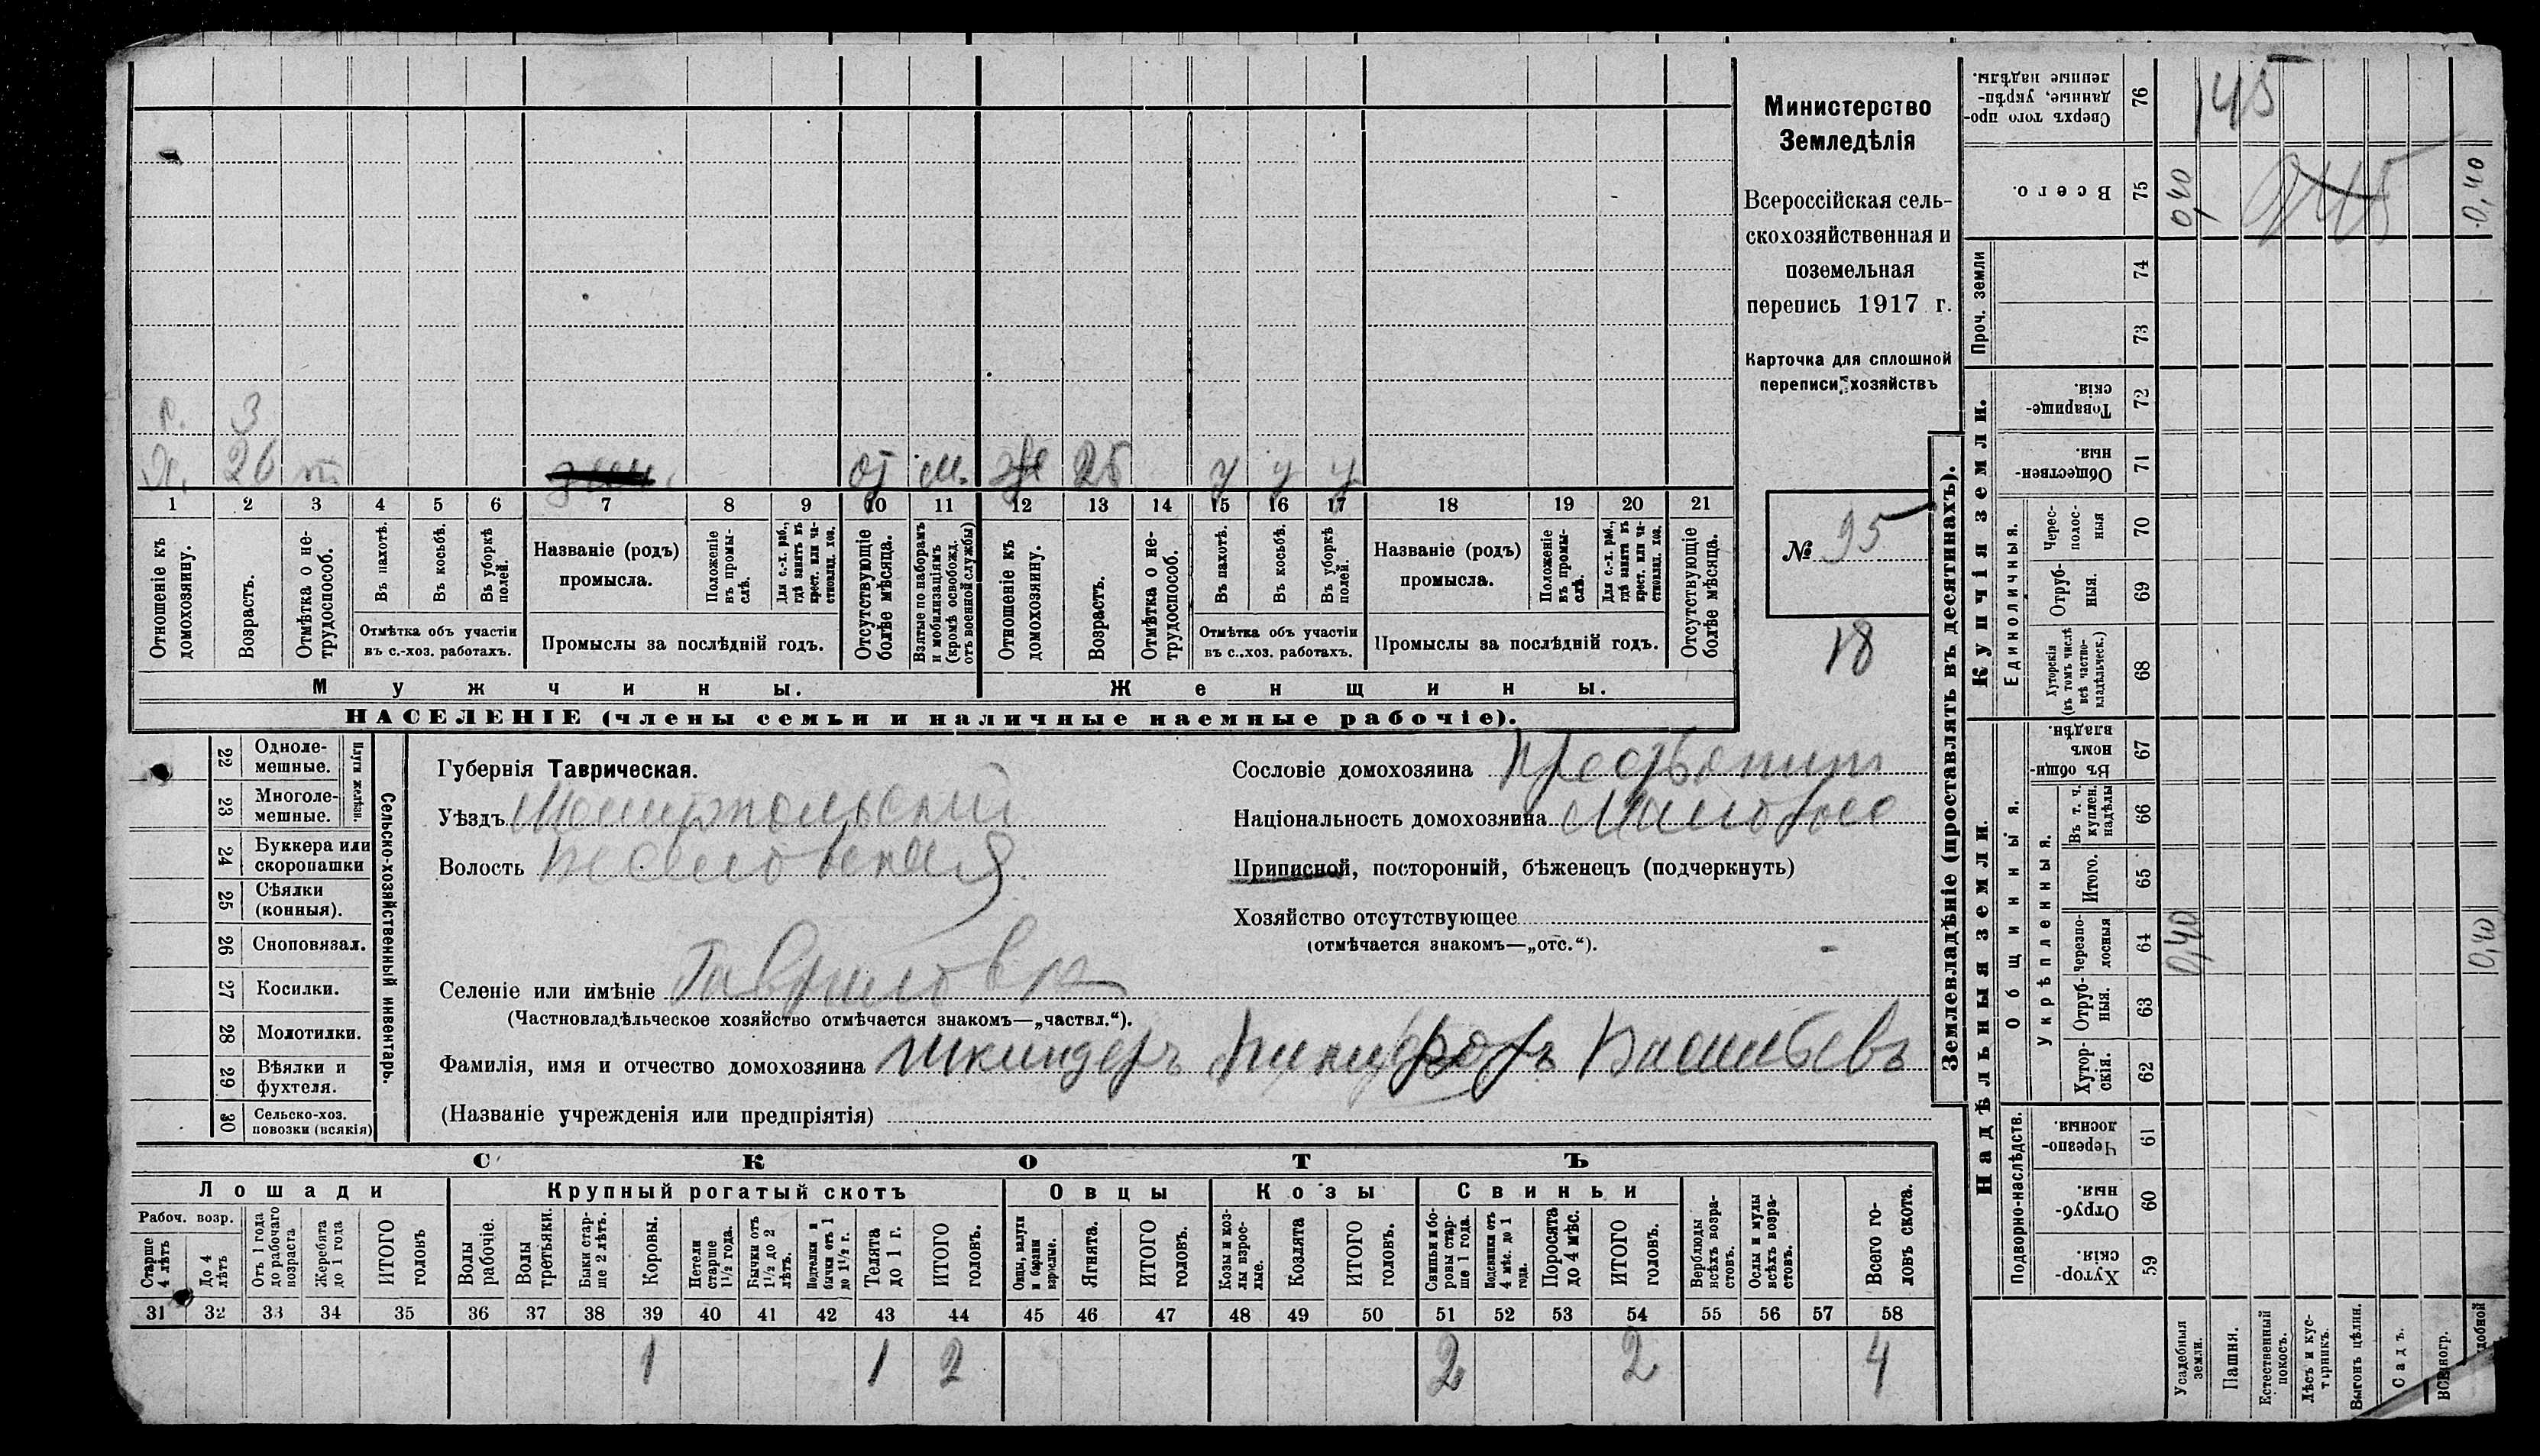 Министерство
Земледѣлія
Всероссійская сель-
скохозяйственная и
поземельная
перепись 1917 г.
Карточка для сплошной
переписи хозяйствъ
№ 95
18
г. 3
Х. 26 от м. ж 25 у у у
1 2 3 4 5 6 7 8 9 10 11 12 13 14 15 16 17 18 19 20 21
Отношеніе къ домохозяину.
Возрастъ.
Отмѣтка о не-
трудоспособ.
Въ пахотѣ.
Въ косьбѣ.
Въ уборкѣ полей.
Отмѣтка объ участіи
въ с.-хоз. работахъ.
Названіе (родъ)
промысла.
Положеніе
въ промы-
слѣ.
Для с.-х. раб.,
гдѣ занятъ въ
крест. или ча-
стновлад. хоз.
Промыслы за послѣдній годъ.
Отсутствующіе
болѣе мѣсяца.
Взятые по наборамъ
и мобилизаціямъ
(кромѣ освобожд.
отъ военной службы)
Отношеніе къ
домохозяину.
Возрастъ.
Отмѣтка о не-
трудоспособ.
Въ пахотѣ.
Въ косьбѣ.
Въ уборкѣ
полей.
Отмѣтка объ участіи
въ с.-хоз. работахъ.
Названіе (родъ)
промысла.
Положеніе
въ промы-
слѣ.
Для с.-х. раб.,
гдѣ занята въ
крест. или ча-
стновлад. хоз.
Промыслы за послѣдній годъ.
Отсутствующіе
болѣе мѣсяца.
Мужчины.
Женщины.
НАСЕЛЕНІЕ (члены семьи и наличные наемные рабочіе).
22 Одноле-
мешные.
23 Многоле-
мешные.
Плуги желѣзн.
24 Буккера или
скоропашки
25 Сѣялки
(конныя).
26 Сноповязал.
27 Косилки.
28 Молотилки.
29 Вѣялки и
фухтеля.
30 Сельско-хоз.
повозки (всякія)
Сельско-хозяйственный инвентарь.
Губернія Таврическая.
Уѣздъ
Волость
Селеніе или имѣніе Гавриловка
(Частновладѣльческое хозяйство отмѣчается знакомъ—„частвл.“).
Фамилія, имя и отчество домохозяина Шкиндеръ Никифоръ Васильевъ
(Названіе учрежденія или предпріятія)
Сословіе домохозяина
Національность домохозяина
Приписной, посторонній, бѣженецъ (подчеркнуть)
Хозяйство отсутствующее
(отмѣчается знакомъ—„отс.“).
СКОТЪ
Лошади
Рабоч. возр.
Старше
4 лѣтъ
До 4
лѣтъ
Отъ 1 года
до рабочаго
возраста
Жеребята
до 1 года
ИТОГО
головъ
Крупный рогатый скотъ
Волы
рабочіе.
Волы
третьяки.
Быки стар-
ше 2 лѣтъ.
Коровы.
Петели
старше
1½ года.
Бычки отъ
1½ до 2
лѣтъ.
Подтелки и
бычки отъ 1
до 1½ г.
Телята
до 1 г.
ИТОГО
головъ.
Овцы
Овцы, валухи
и бараны
взрослые.
Ягнята.
ИТОГО
головъ.
Козы
Козы и коз-
лы взрос-
лые.
Козлята
ИТОГО
головъ.
Свиньи
Свиньи и бо-
ровы стар-
ше 1 года.
Подсвинки отъ
4 мѣс. до 1
года.
Поросята
до 4 мѣс.
ИТОГО
головъ.
Верблюды
всѣхъ возра-
стовъ.
Ослы и мулы
всѣхъ возра-
стовъ.
Всего го-
ловъ скота.
31 32 33 34 35 36 37 38 39 40 41 42 43 44 45 46 47 48 49 50 51 52 53 54 55 56 57 58
1 1 2 2 2 4
Землевладѣніе (проставлять въ десятинахъ).
Купчія земли.
Надѣльныя земли.
Сверхъ того про-
данные, укрѣп-
ленные надѣлы.
76
145
Всего.
75
0,40
0,40
Проч. земли
74
73
Товарище-
скія.
72
Обществен-
ныя.
71
Единоличныя.
Черес-
полос-
ныя
70
Отруб-
ныя.
69
Хуторскія
(въ томъ числѣ
всѣ частно-
владѣльческ.)
68
Общинныя.
Въ общи-
номъ
владѣн.
67
Укрѣпленныя.
Въ т. ч.
куплен.
надѣлы
66
Итого.
65
Черезпо-
лосныя
64
0,40
0,40
Отруб-
ныя.
63
Хутор-
скія.
62
Подворно-наслѣдств.
Черезпо-
лосныя
61
Отруб-
ныя.
60
Хутор-
скія.
59
Усадебныя
земли.
Пашня.
Естественный
покосъ.
Лѣсъ и кус-
тарникъ.
Выгонъ цѣлин.
Садъ.